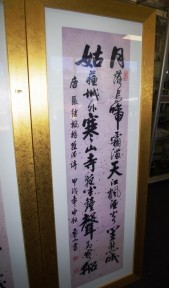 月落烏啼霜滿天江楓漁火對愁眠
姑蘇城外寒山寺夜半鐘聲到客船
唐張繼楓橋夜泊詩甲戌年中秋